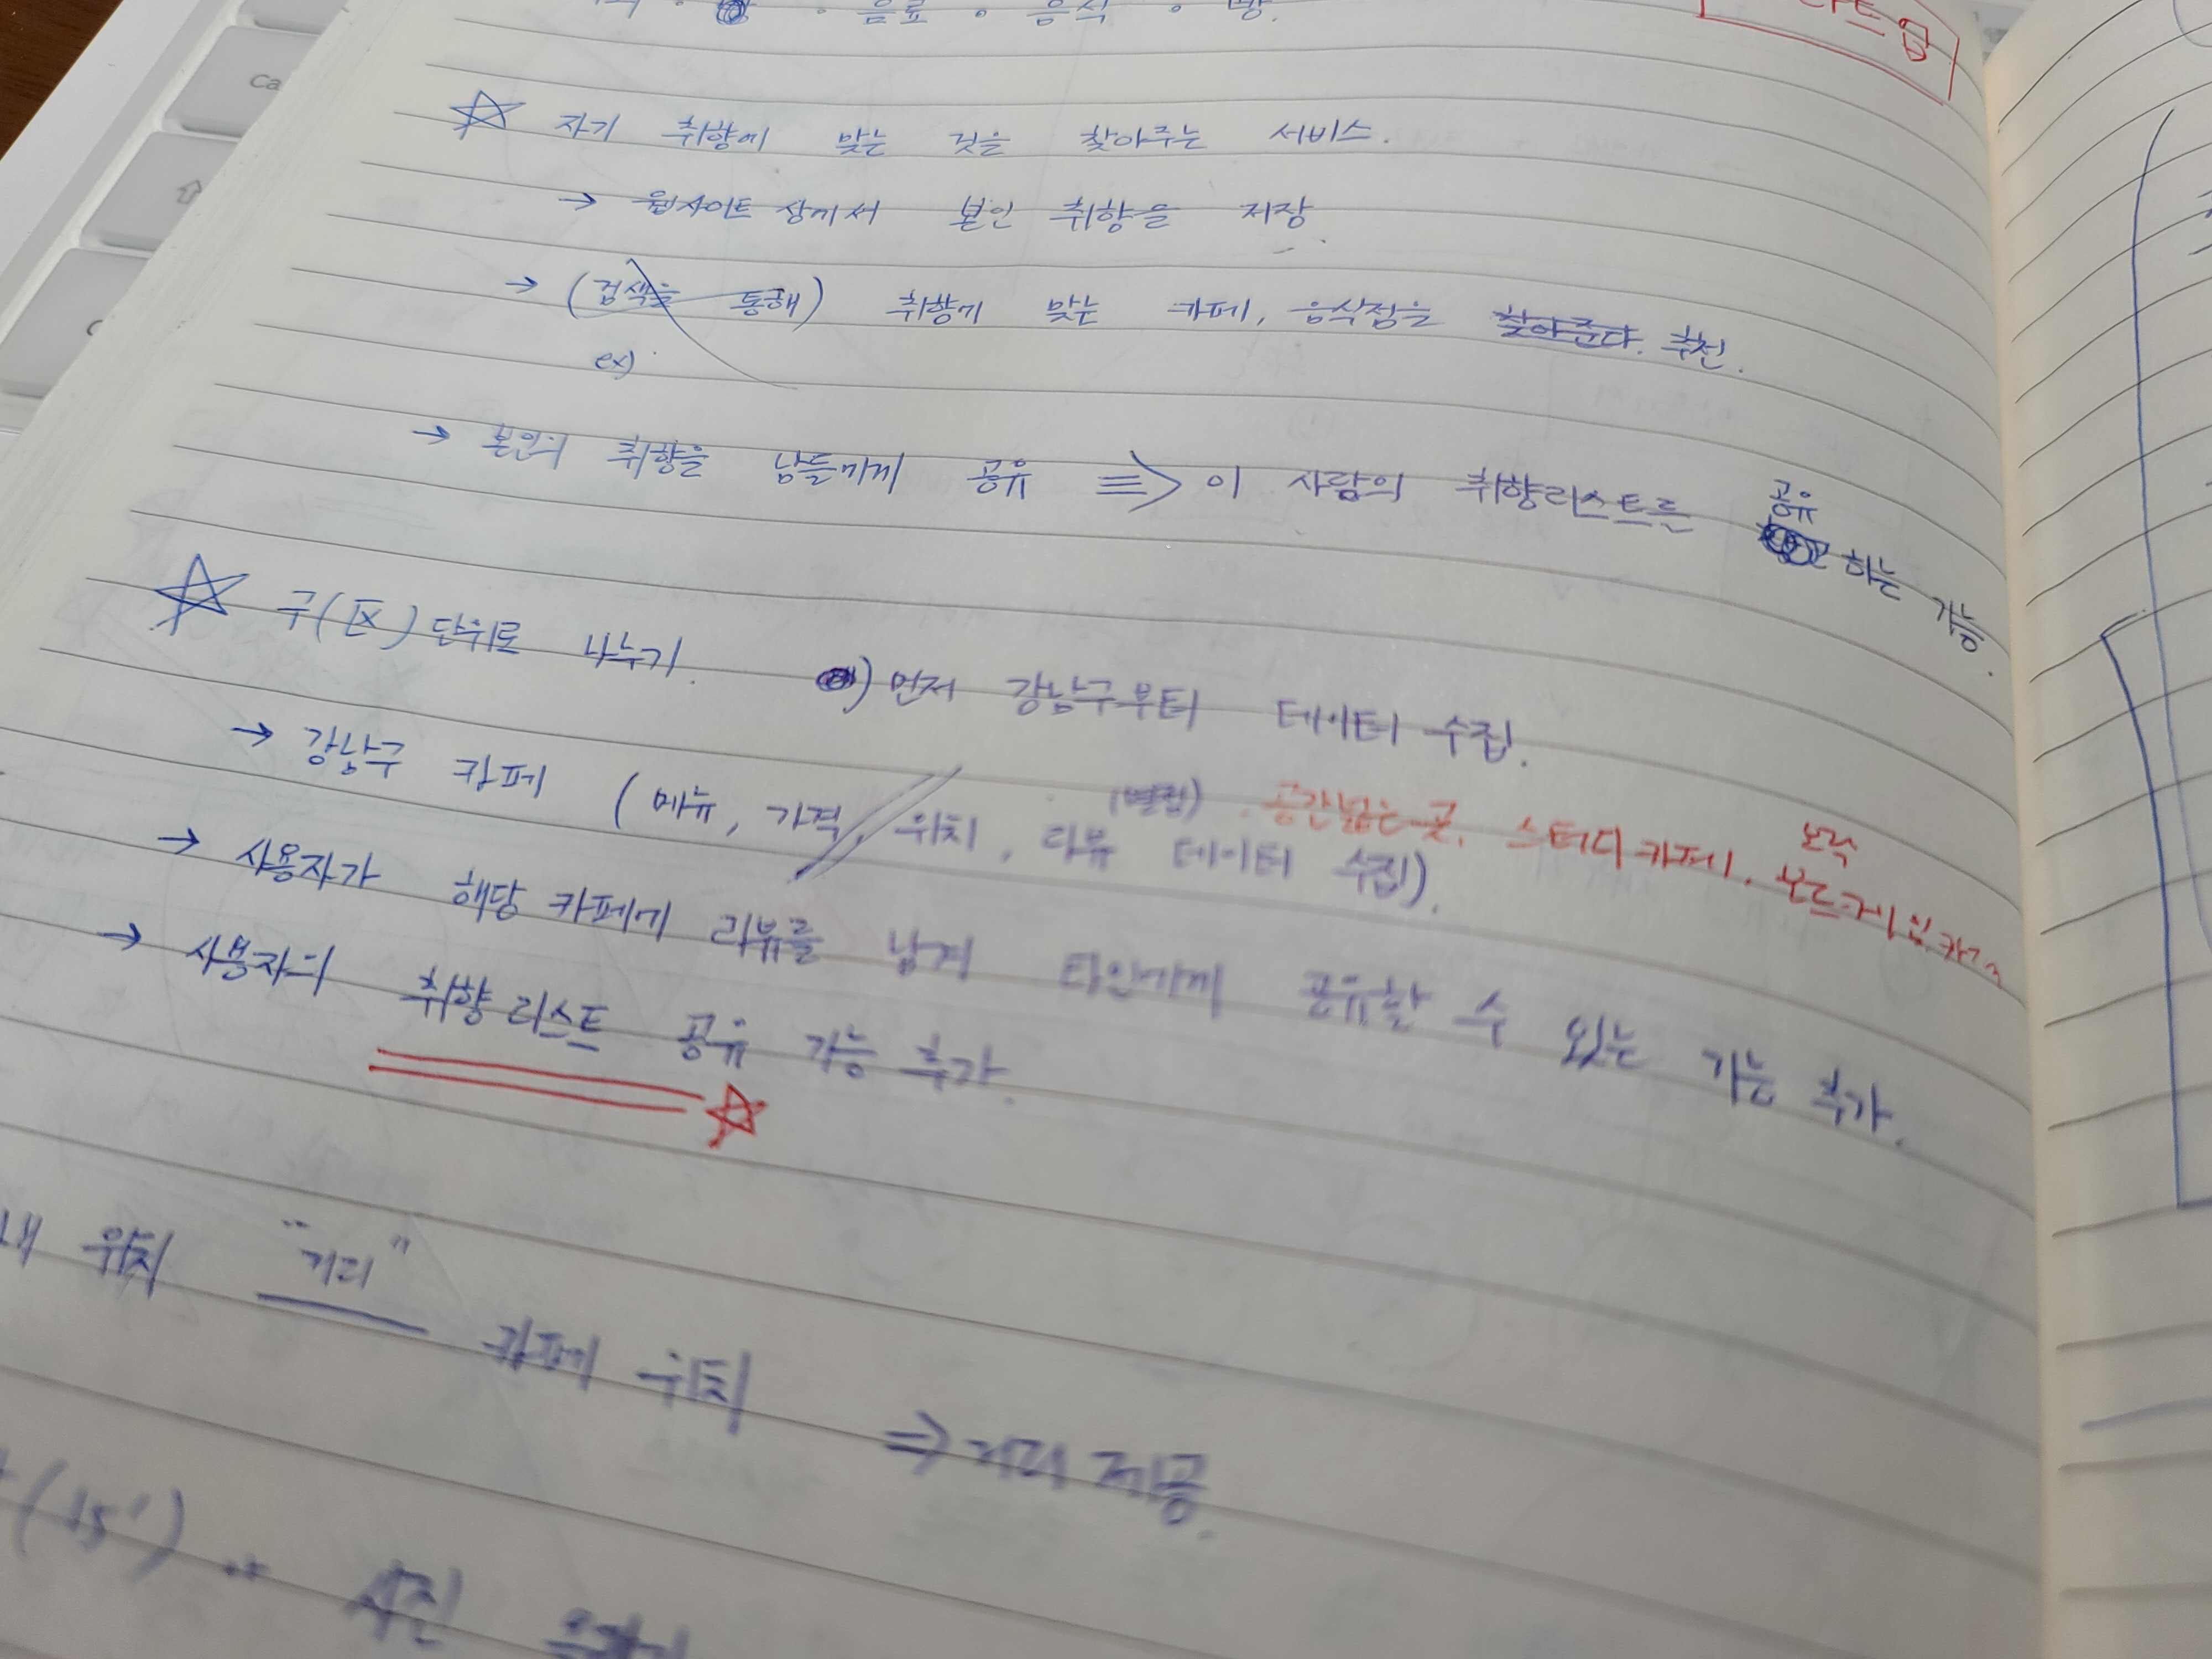 음료 · 음식 ·
☆ 자기 취향에 맞는 것을 찾아주는 서비스.
→ 웹사이트 상에서 본인 취향을 저장.
→ (검색을 통해) 취향에 맞는 카페, 음식점을 찾아준다. 추천.
ex)
→ 본인의 취향을 남들에게 공유 ⇒ 이 사람의 취향리스트를 공유 하는 기능.
☆ 구(区) 단위로 나누기. ) 먼저 강남구부터 데이터 수집.
→ 강남구 카페 (메뉴, 가격, 위치, 리뷰 데이터 수집).
(별점) · 공간넓은 곳. 스터디카페. 보드게임 카페
→ 사용자가 해당 카페에 리뷰를 남겨 타인에게 공유할 수 있는 기능 추가.
→ 사용자의 취향리스트 공유 기능 추가.
내 위치 "거리" 카페 위치 ⇒ 거리 제공.
(15') 사진